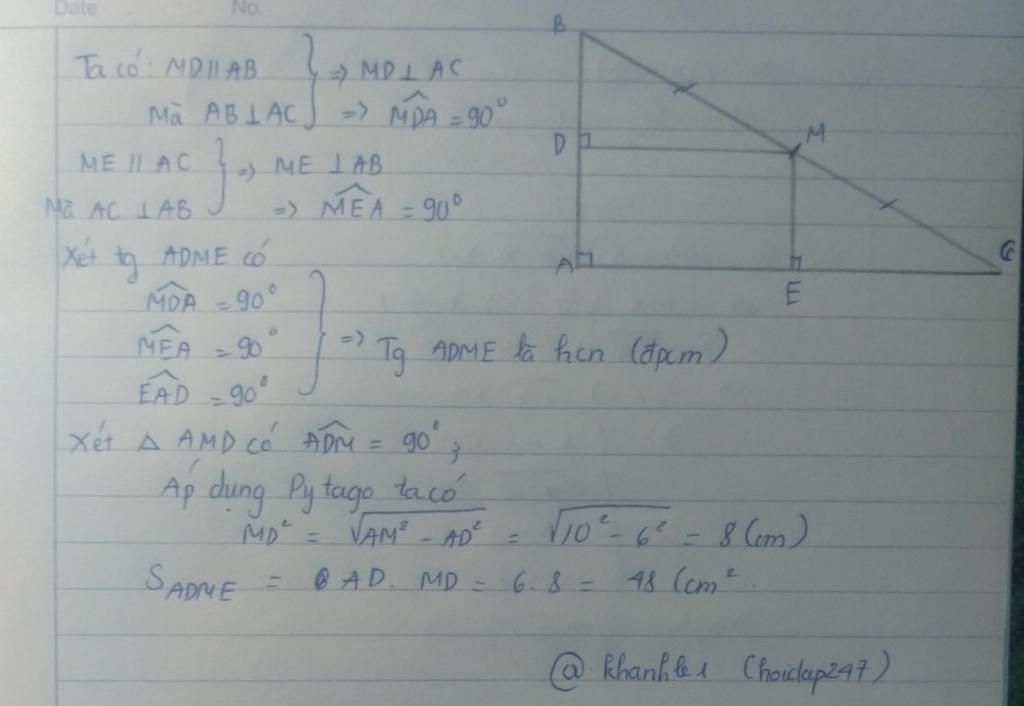 Date No.
Ta có: MD // AB } => MD ⊥ AC
Mà AB ⊥ AC => \widehat{MDA} = 90°
ME // AC } => ME ⊥ AB
Mà AC ⊥ AB => \widehat{MEA} = 90°
Xét tg ADME có
\widehat{MDA} = 90°
\widehat{MEA} = 90° } => Tg ADME là hcn (đpcm)
\widehat{EAD} = 90°
Xét △ AMD có \widehat{ADM} = 90°;
Áp dụng Pytago ta có
MD² = √(AM² - AD²) = √(10² - 6²) = 8 (cm)
S_{ADME} = AD. MD = 6. 8 = 48 (cm²
@ khanhle1 (hoidap247)
B
D
M
A
E
C